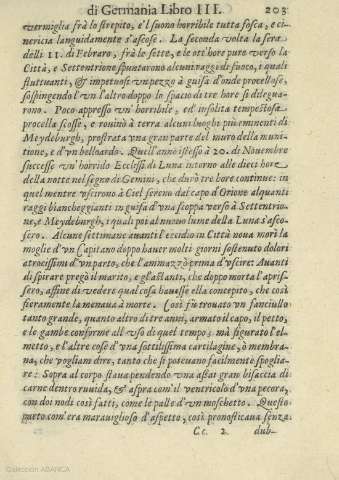 di Germania Libro III. 203
vermiglia frà lo strepito, e'l suono horribile tutta fosca, e ci-
nericia languidamente s'ascose. La seconda volta la sera
delli 11. di Febraro, frà le sette, e le ott'hore pure verso la
Città, e Settentrione spuntarono alcuni raggi di fuoco, i quali
fluttuanti, & impetuosi vn pezzo à guisa d'onde procellose,
sospingendo l'vn l'altro doppo lo spacio di tre hore si dilegua-
rono. Poco appresso vn'horribile, ed insolita tempestosa
procella scosse, e rouinò à terra alcuni luoghi più eminenti di
Meydeburgh, prostrata vna gran parte del muro della muni-
tione, e d'vn belloardo. Quell'anno istesso à 20. di Nouembre
successe vn'horrido Ecclissi di Luna intorno alle dieci hore
della notte nel segno di Gemini, che durò tre hore continue: in
quel mentre vscirono à Ciel sereno dal capo d'Orione alquanti
raggi biancheggianti in guisa d'vna scoppa verso à Settentrio-
ne, e Meydeburgh, i quali poi al nuouo lume della Luna s'asco-
sero. Alcune settimane auanti l'eccidio in Città noua morì la
moglie d'vn Capitano doppo hauer molti giorni sostenuto dolori
atrocissimi d'vn parto, che l'ammazzò prima d'vscire: Auanti
di spirare pregò il marito, e gl'astanti, che doppo morta l'apris-
sero, affine di vedere qual cosa hauesse ella concepito, che così
fieramente la menaua à morte. Così fù trouato vn fanciullo
tanto grande, quanto altro di tre anni, armato il capo, il petto,
e le gambe conforme all'vso di quel tempo; mà figurato l'el-
metto, e l'altre cose d'vna sottilissima cartilagine, ò membra-
na, che vogliam dire, tanto che si poteuano facilmente spoglia-
re: Sopra al corpo staua pendendo vna assai gran bisaccia di
carne dentro ruuida, & aspra com'il ventricolo d'vna pecora,
con doi nodi così fatti, come le palle d'vn moschetto. Questo
parto com'era marauiglioso d'aspetto, così pronosticaua senza
Cc 2 dub-
Colección ABANCA